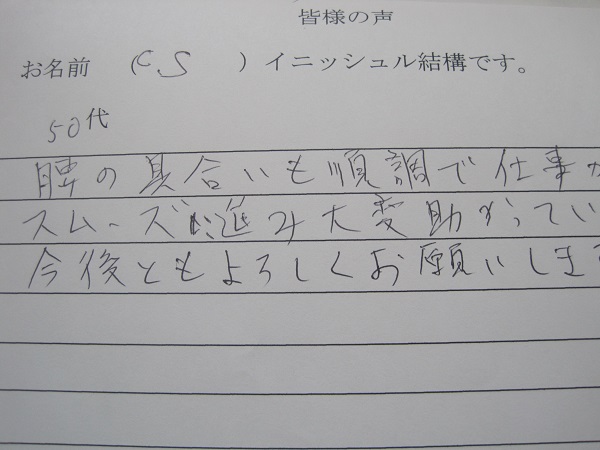 皆様の声
お名前 （CS ）イニッシュル結構です。
50代
脾の具合いも順調で仕事が
スムーズに進み大変助かってい
今後ともよろしくお願いしま